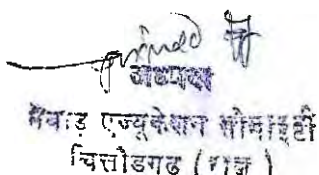 अध्यक्ष
मेवाड़ एज्यूकेशन सोसाइटी
चित्तौडगढ़ (राज.)